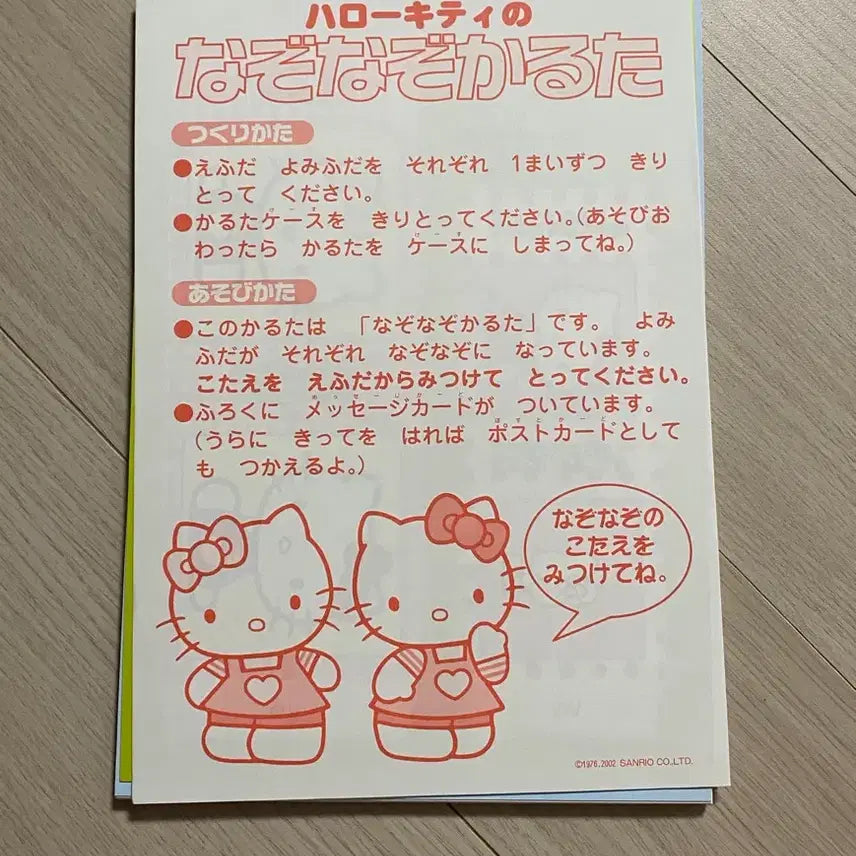 ハローキティの
なぞなぞかるた
つくりかた
●えふだ　よみふだを　それぞれ　1まいずつ　きり
とって　ください。
●かるたケースを　きりとってください。(あそびお
わったら　かるたを　ケースに　しまってね。)
あそびかた
●このかるたは　「なぞなぞかるた」です。　よみ
ふだが　それぞれ　なぞなぞに　なっています。
こたえを　えふだからみつけて　とってください。
●ふろくに　メッセージカードが　ついています。
(うらに　きってを　はれば　ポストカードとして
も　つかえるよ。)
なぞなぞの
こたえを
みつけてね。
©1976,2002 SANRIO CO.,LTD.